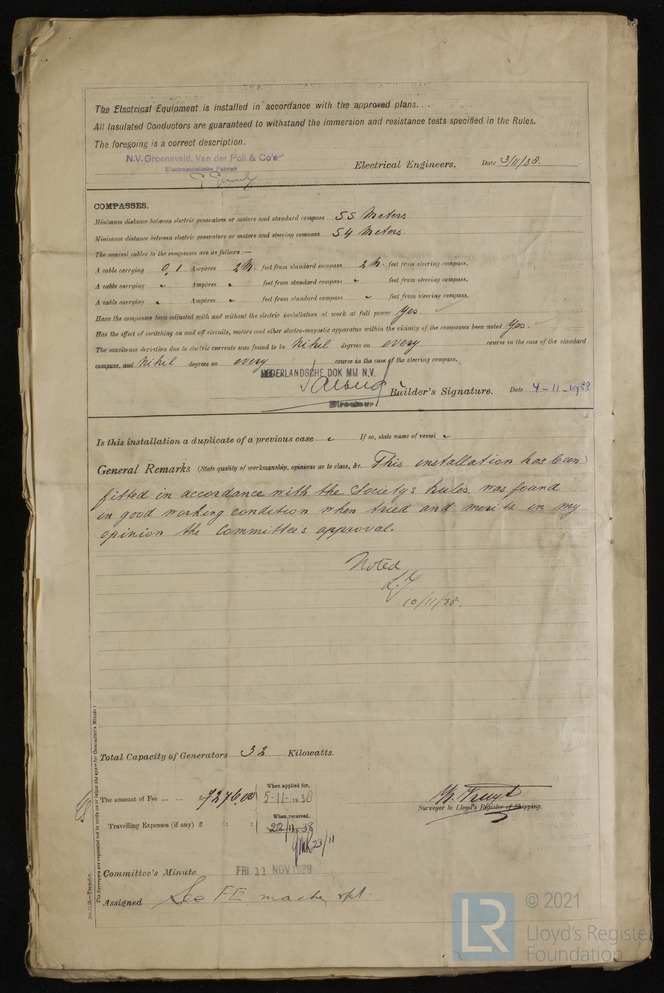 The Electrical Equipment is installed in accordance with the approved plans...
All Insulated Conductors are guaranteed to withstand the immersion and resistance tests specified in the Rules.
The foregoing is a correct description.
N.V. Groeneveld, Van der Poll & Co's
Electrotechnische Fabriek
Electrical Engineers. Date 3/11/38.
COMPASSES.
Minimum distance between electric generators or motors and standard compass 55 Meters
Minimum distance between electric generators or motors and steering compass 54 Meters.
The nearest cables to the compasses are as follows:—
A cable carrying 0,1 Ampères 2 M. feet from standard compass 2 M. feet from steering compass.
A cable carrying " Ampères " feet from standard compass " feet from steering compass.
A cable carrying " Ampères " feet from standard compass " feet from steering compass.
Have the compasses been adjusted with and without the electric installation at work at full power Yes
Has the effect of switching on and off circuits, motors and other electro-magnetic apparatus within the vicinity of the compasses been noted Yes.
The maximum deviation due to electric currents was found to be Nihil degrees on every course in the case of the standard
compass, and Nihil degrees on every course in the case of the steering compass.
NEDERLANDSCHE DOK MIJ N.V.
Directeur
Builder's Signature. Date 4-11-1938
Is this installation a duplicate of a previous case " If so, state name of vessel "
General Remarks (State quality of workmanship, opinions as to class, &c. This installation has been
fitted in accordance with the Society's Rules, was found
in good working condition when tried and merits in my
opinion the Committee's approval.
Noted
10/11/38.
Total Capacity of Generators 32 Kilowatts.
The amount of Fee ... ... 276.00 When applied for, 5-11-1938
When received,
Travelling Expenses (if any) £ : : 22/11 1938
23/11
Surveyor to Lloyd's Register of Shipping.
Committee's Minute FRI 11 NOV 1938
Assigned See F.E. machy rpt.
© 2021
LR
Lloyd's Register
Foundation